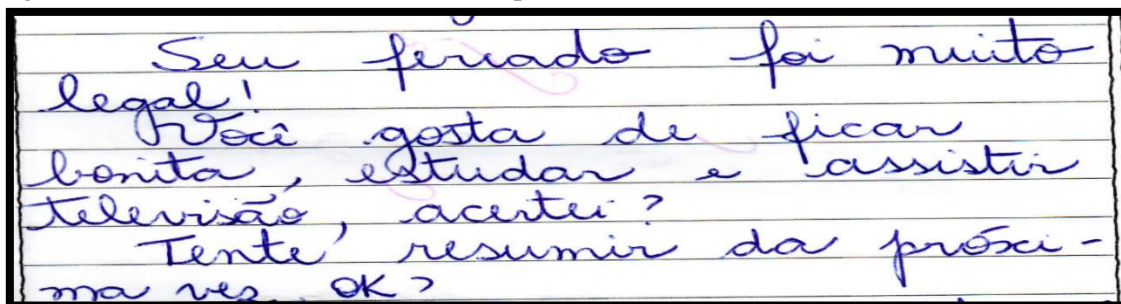 Seu feriado foi muito
legal!
Você gosta de ficar
bonita, estudar e assistir
televisão, acertei?
Tente resumir da próxi-
ma vez, ok?